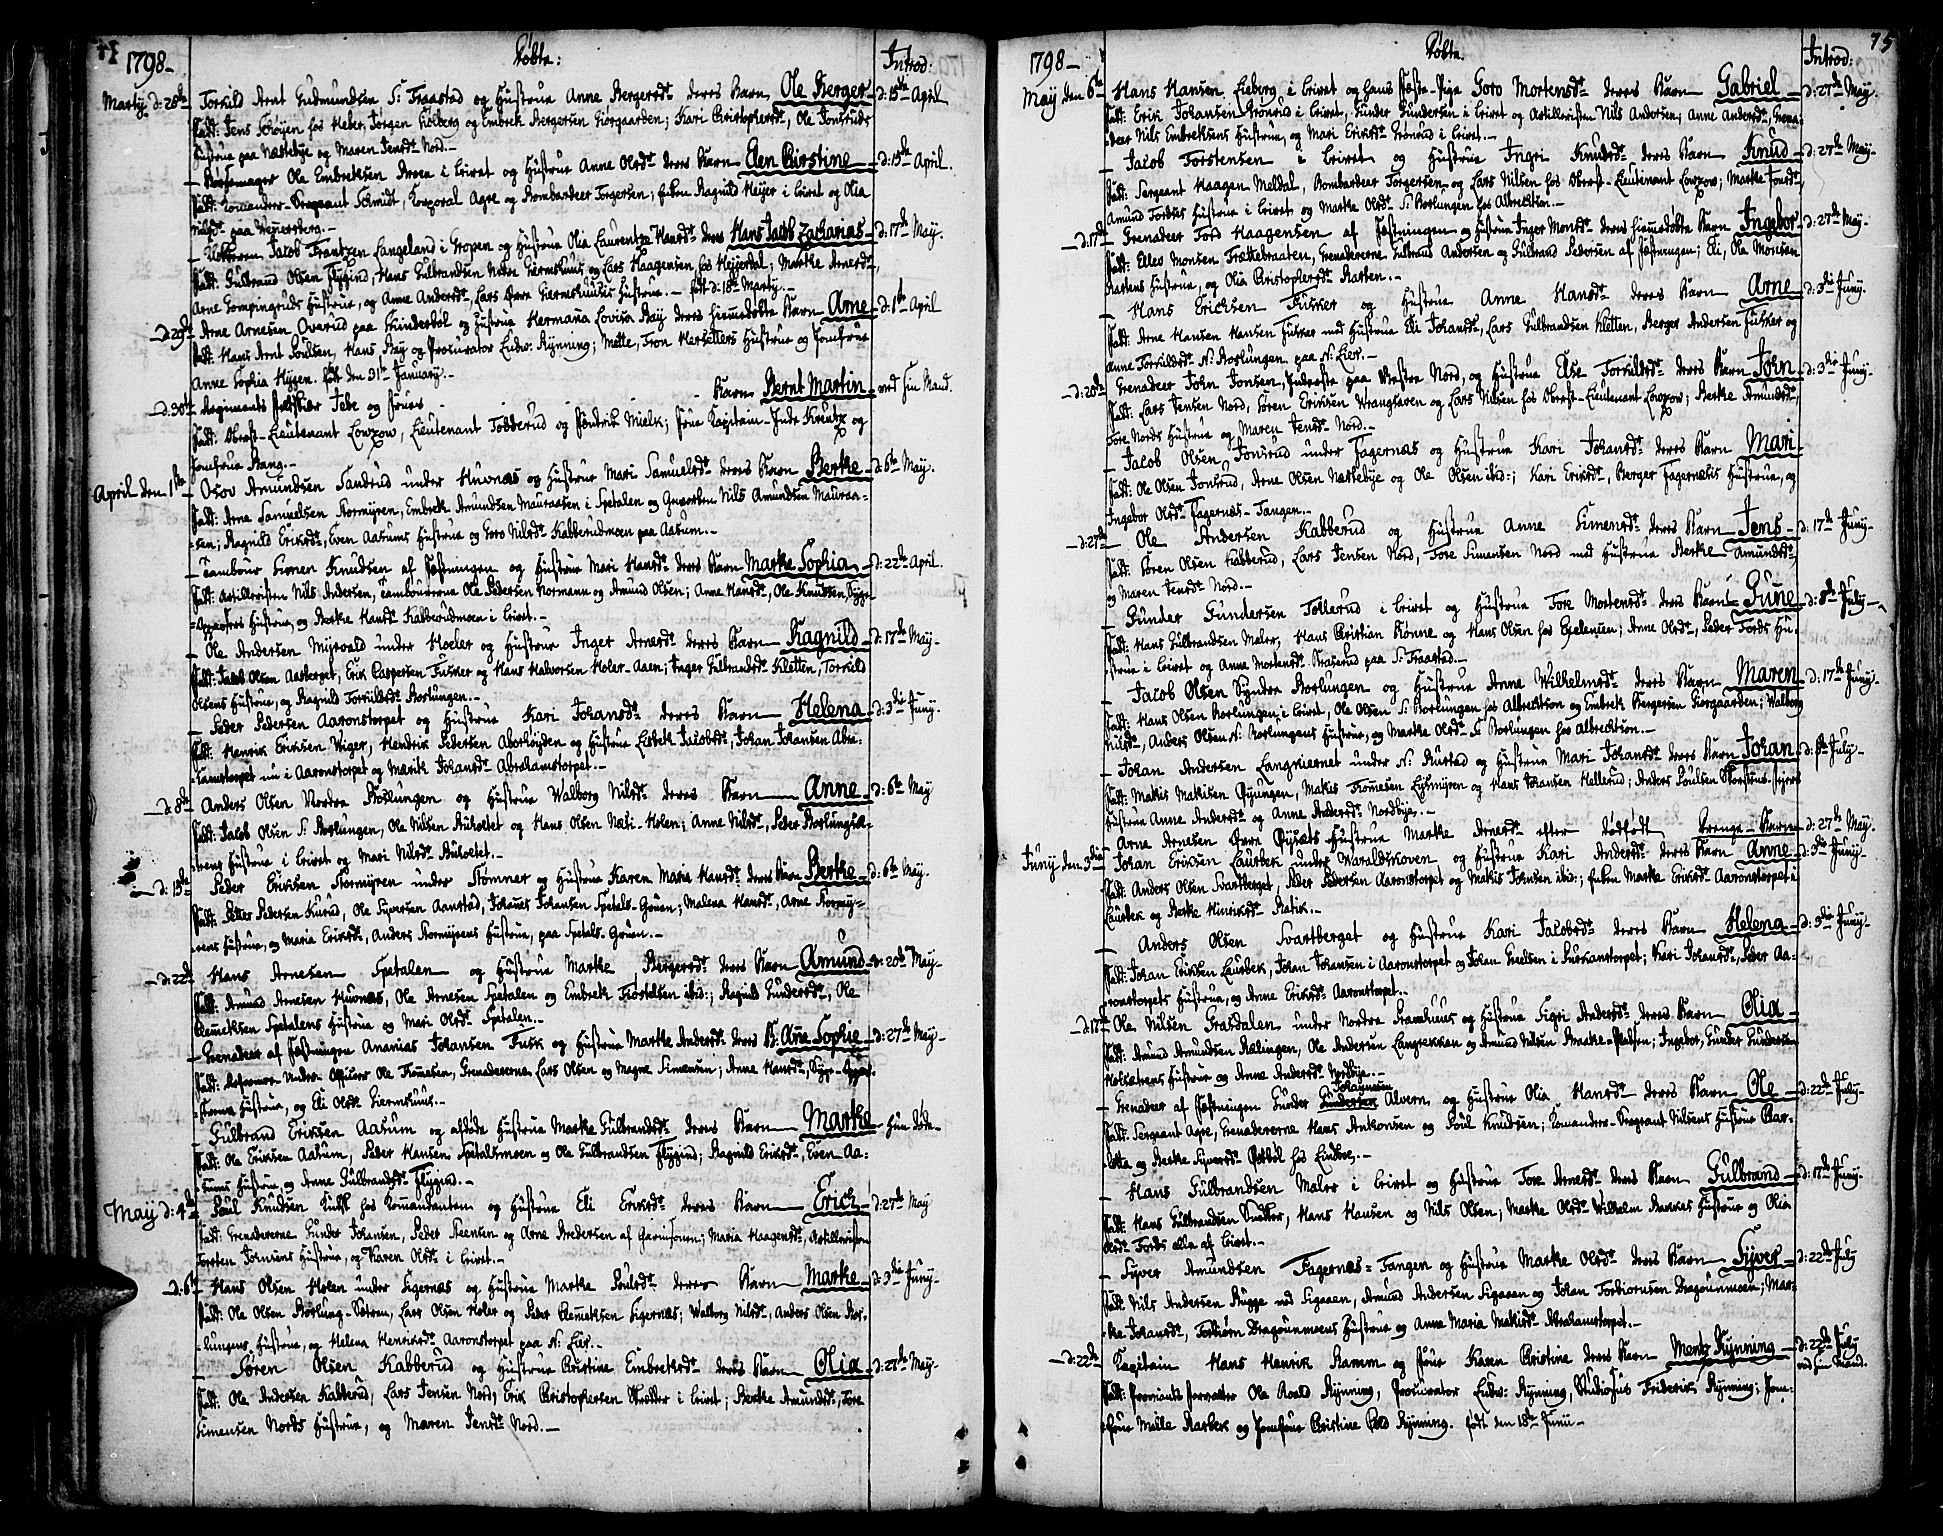 1798_ Døbte: Introd:
Marty d: 25de Torkild Arnt Gudmundsen S: Fraastad og Hustrue Anne Bergersdr deres Barn Ole Berger d: 15de April
Hustrue paa Næstebye og Maren Jensdr Nord._
Ole Embretsen i Leiret og Hustrue Anne Olsdr deres Barn Elen Christine d: 15de April.
fadd: Sergeant Schmidt, Corporal Agre og Bombardeer Torgersen; Ragnild Meijer i Leiret og Olia
Nilsdr paa Weyersberg._
Jacob Frantzen Langeland i Gropen og Hustrue Olia Laurentze deres Hans Jacob Zacharias d: 17de May.
fadd: Gulbrand Olsen Flygind, Hans Gulbrandsen Nedre og Lars Haagensen hos Meyerdal; Marthe Arnesdr,
Hustrue, og Anne Andersdr, Lars Hustrue._ født d: 18de Marty._
d: 29de Arne Arnesen Overud paa Skinderbøl og Hustrue Hermana Lovisa Bay deres hiemmedøbte Barn Arne d: 1ste April
fadd: Hans Arnt Poulsen, Hans Bay og Procurator Ludv: Rynning; Mette, Tron Hersætters Hustrue og Jomfrue
Anne Sophia Hyzen. født den 31te January._
d: 30te Regiments Feldskiær Tebe og Frues Barn Bernt Martin med sin Mand.
fadd: Obrist-Lieutenant Lowzow, Lieutenant Todderud og Mielk; Frue Capitain Jude Kreutz og
Jomfrue Bang._
April den 1ste Osov Amundsen Sandrud under Huvnæs og Hustrue Mari Samuelsdr deres Barn Berthe d: 6te May.
fadd: Arne Samuelsen Stormyren, Embret Amundsen Mauraasen i Spetalen og Nils Amundsen Mauraa-
sen; Ragnild Eriksdr, Even Aasums Hustrue og Goro Nilsdr Kabberudmoen paa Aasum._
Tambour Simen Knudsen af Fæstningen og Hustrue Mari Hansdr deres Barn Marthe Sophia d: 22de April.
fadd: Artilleristen Nils Andersen, Tambourerne Ole Pedersen Normann og Amund Olsen; Anne Hansdr, Ole Knudsen
Hustrue, og Berthe Hansdr Kabberudmoen i Leiret._
Ole Andersen Myrvold under Holer og Hustrue Inger Arnesdr deres Barn Ragnild d: 17de May
fadd: Jacob Olsen Aasberget, Erik Caspersen Fusker og Hans Halvorsen Holer-Aaen; Inger Gulbrandsdr Kletten, Torkild
Olsens Hustrue, og Ragnild Torkildsdr Borlungen._
Peder Pedersen Aaronstorpet og Hustrue Kari Johansdr deres Barn Helena d: 3die Juny.
fadd: Henrik Eriksen Viger, Hendrik Pedersen Aborhøjden og Hustrue Lisbet Jacobsdr; Johan Johansen Abra-
hamstorpet nu i Aaronstorpet og Marit Johansdr Abrahamstorpet._
d: 8de Anders Olsen Nordre Borlungen og Hustrue Walborg Nilsdr deres Barn Anne d: 6te May
fadd: Jacob Olsen S: Borlungen, Ole Nilsen og Hans Olsen Holen; Anne Nilsdr, Peder
Hustrue i Leiret og Mari Nilsdr._
d: 15de Peder Eriksen Stormyren under Stommer og Hustrue Karen Maria Hansdr deres Barn Berthe d: 6te May.
fadd: Petter Pedersen Kurud, Ole Syversen Aanstad, Johanes Johansen Spetals-Gruen; Malena Hansdr, Arne Stormy-
rens Hustrue, og Maria Eriksdr, Anders Stormyrens Hustrue, paa Spetals-Gruen._
d: 22de Hans Arnesen Spetalen og Hustrue Marthe Bergersdr deres Barn Amund d: 20de May
fadd: Amund Arnesen Huvnæs, Ole Arnesen Spetalen og Embret Trostelsen ibid:; Ragnild Gundersdr, Ole
Clemetsen Spetalens Hustrue og Mari Olsdr Spetalen._
Grenadeer af Fæstningen Ananias Johansen Fusk og Hustrue Marthe Andersdr deres B: Ane Sophie d: 27de May
fadd: Under-Officeer Ole Tomesen, Grenadererne Lars Olsen og Magne Simensen; Anne Hansdr,
Hustrue, og Eli Olsdr._
Gulbrand Eriksen Aasum og afdøde Hustrue Marthe Gulbrandsdr deres Barn Marthe hun døde
fadd: Ole Eriksen Aasum, Peder Hansen Spetalsmoen og Ole Gulbrandsen Flygind; Ragnild Eriksdr, Even Aa-
sums Hustrue, og Anne Gulbrandsdr Flygind._
May d: 4de Poul Knudsen Kusk hos Commendanten og Hustrue Eli Eriksdr deres Barn Erich d: 27de May
fadd: Grenadererne Gunder Johansen, Peder Steensen og Arne Pedersen af Garnisonen; Maria Haagensdr, Artilleristen
Torsten Hustrue, og Karen Olsdr i Leiret._
d: 6te Hans Olsen Holen under Sigernæs og Hustrue Marthe Poulsdr deres Barn Marthe d: 3die Juny.
fadd: Ole Olsen Borlung-Sætren, Lars Olsen Holer og Peder Clemetsen Sigernæs; Walborg Nilsdr, Anders Olsen Bor-
lungens Hustrue, og Helena Henriksdr Aaronstorpet paa N: Eier._
Søren Olsen Kabberud og Hustrue Christine Embretsdr deres Barn Olia d: 27de May.
fadd: Ole Andersen Kabberud, Lars Jensen Nord, Erik Christophersen Skredder i Leiret; Berthe Amundsdr, Tore
Simensen Nords Hustrue, og Maren Jensdr Nord._
75
1798_ Døbte. Introd:
May den 6te Hans Hansen Lieberg i Leiret og hans Fæste-Pige Goro Mortensdr deres Barn Gabriel d: 27de May.
fadd: Erik Johansen Grønrud i Leiret, Gunder Gundersen i Leiret og Artilleristen Nils Andersen; Anne Andersdr, Grena-
deer Nils Embretsens Hustrue, og Mari Eriksdr Grønrud i Leiret._
Jacob Torstensen i Leiret og Hustrue Ingri Knudsdr deres Barn Knud d: 27de May
fadd: Sergeant Haagen Meldal, Bombardeer Torgersen og Lars Nilsen hos Obrist-Lieutenant Lowzow; Marthe Jonsdr,
Amund Hustrue i Leiret og Marthe Olsdr S: Borlungen hos Albrechtson._
d: 17de Grenadeer Tord Haagensen af Fæstningen og Hustrue Inger Monsdr deres hiemmedøbte Barn Ingebor d: 27de May.
fadd: Elles Monsen Trættebraaten, Grenadererne Gulbrand Andersen og Gulbrand Pedersen af Fæstningen; Eli, Ole Monsen
Hustrue, og Olia Christophersdr._
Hans Erichsen Fusker og Hustrue Anne Hansdr deres Barn Arne d: 3die Juny.
fadd: Arne Hansen Fusker med Hustrue Eli Johansdr, Lars Gulbrandsen Kletten, Berger Andersen Fusker og
Anne Torkildsdr N: Borlungen paa N: Eier._
d: 20de Grenadeer John Jonsen, Inderste paa Vestre Nord, og Hustrue Else Torkildsdr deres Barn John d: 3die Juny
fadd: Lars Jensen Nord, Søren Eriksen Wrangsaven og Lars Nilsen hos Obrist-Lieutenant Lowzow; Berthe Amundsdr,
Tore Nords Hustrue og Maren Jensdr Nord._
Jacob Olsen Jonsrud under Fagernæs og Hustrue Kari Johansdr deres Barn Mari
fadd: Ole Olsen Jonsrud, Arne Olsen Næstebye og Ole Olsen ibid:; Kari Eriksdr, Berger Fagernæsis Hustrue, og
Ingebor Olsdr Fagernæs-Tangen._
d: 27de Ole Andersen Kabberud og Hustrue Anne Simensdr deres Barn Jens d: 17de Juny
fadd: Søren Olsen Kabberud, Lars Jensen Nord, Tore Simensen Nord med Hustrue Berthe Amundsdr,
og Maren Jensdr Nord._
Gunder Gundersen Tollerud i Leiret og Hustrue Tore Mortensdr deres Barn Gune d: 8de July
fadd: Hans Gulbrandsen Maler, Hans Christian Rønne og Hans Olsen hos Exelensen; Anne Olsdr, Peder Tords Hu-
strue i Leiret og Anne Mortensdr paa S: Fraastad._
Jacob Olsen Syndre Borlungen og Hustrue Anne Wilhelmsdr deres Barn Maren d: 17de Juny
fadd: Hans Olsen Borlungen i Leiret, Ole Olsen S: Borlungen hos Albrechtson og Embret Bergersen Giorgaarden; Walborg
Nilsdr, Anders Olsen N: Borlungens Hustrue, og Marthe Olsdr S: Borlungen hos Albrechtson._
Johan Andersen Langkiernet under N: Rustad og Hustrue Mari Johansdr deres Barn Johan d: 8de July
fadd: Makis Makisen Øyungen, Makis Tomesen Lysmyren og Hans Johansen Hellerud; Anders Poulsen
Hustrue Anne Andersdr og Anne Andersdr Nordbye._
Arne Arnesen Øvre Øysæts Hustrue Marthe Arnesdr efter dødfødt Drenge-Barn d: 27de May.
Juny den 3die Johan Eriksen Laurbek under Waraldskoven og Hustrue Kari Andersdr deres Barn Anne d: 3die Juny
fadd: Anders Olsen Svartberget, Peder Pedersen Aaronstorpet og Makis Johansen ibid:; Enken Marthe Eriksdr Aaronstorpet i
Laurbek og Berthe Hinriksdr._
Anders Olsen Svartberget og Hustrue Kari Jacobsdr deres Barn Helena d: 3die Juny
fadd: Johan Eriksen Laurbek, Johan Johansen i Aaronstorpet og Johan Poulsen i Purkanstorpet; Kari Johansdr, Peder Aa-
ronstorpets Hustrue, og Anne Eriksdr Aaronstorpet._
d: 17de Ole Nilsen Grasdalen under Nordre og Hustrue Sigri Andersdr deres Barn Olia
fadd: Amund Amundsen Rælingen, Ole Andersen Langrekken og Amund Nilsen; Ingebor, Gunder Gundersen
Hustrue og Anne Andersdr Nordbye._
Johannesen
Grenadeer af Fæstningen Gunder Gundersen Alvern og Hustrue Olia Hansdr deres Barn Ole d: 22de July
fadd: Sergeant Agre, Grenadererne Hans Anthonsen og Poul Knudsen; Commandeer-Sergeant Nilsens Hustrue Char-
lotta og Berthe Syversdr hos Lindboe._
Hans Gulbrandsen Maler i Leiret og Hustrue Tore Arnesdr deres Barn Gulbrand d: 17de Juny
fadd: Hans Gulbrandsen, Hans Hansen og Nils Olsen; Marthe Olsdr Wilhelm Hustrue og Olia
Olsdr alle af Leiret._
Syver Amundsen Fagernæs-Tangen og Hustrue Marthe Olsdr deres Barn Syver d: 22de July
fadd: Nils Andersen Rygge ved Sigaaen, Amund Andersen Sigaaen og Johan Torbiornsen Dragounmoen; Mar-
the Johansdr, Torbiørn Dragounmoens Hustrue og Anne Maria Makisdr Abrahamstorpet._
d: 22de Capitain Hans Henrik Ramm og Frue Karen Christine deres Barn Mentz Rynning d: 22de July
med sin Mand.
fadd: Proviants Forvalter Ole Roald Rynning, Procurator Ludv: Rynning, Studiosus Friderik Rynning; Jom-
frue Malle Barbek og Jomfrue Christine Rynning. født den 18de Juny_